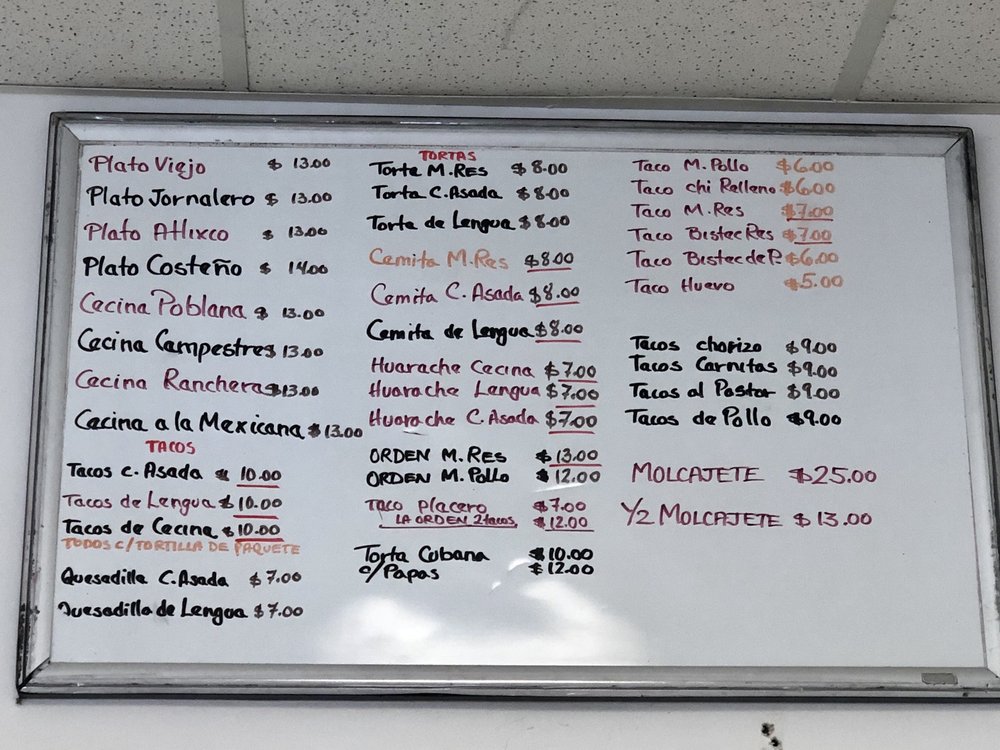 Plato Viejo $ 13.00
Plato Jornalero $ 13.00
Plato Atlixco $ 13.00
Plato Costeño $ 14.00
Cecina Poblana $ 13.00
Cecina Campestre $ 13.00
Cecina Ranchera $ 13.00
Cecina a la Mexicana $ 13.00
TACOS
Tacos C. Asada $ 10.00
Tacos de Lengua $ 10.00
Tacos de Cecina $ 10.00
TODOS C/TORTILLA DE PAQUETE
Quesadilla C. Asada $ 7.00
Quesadilla de Lengua $ 7.00
TORTAS
Torta M. Res $ 8.00
Torta C. Asada $ 8.00
Torta de Lengua $ 8.00
Cemita M. Res $ 8.00
Cemita C. Asada $ 8.00
Cemita de Lengua $ 8.00
Huarache Cecina $ 7.00
Huarache Lengua $ 7.00
Huarache C. Asada $ 7.00
ORDEN M. Res $ 13.00
ORDEN M. Pollo $ 12.00
Taco Placero $ 7.00
LA ORDEN 2 tacos, $ 12.00
Torta Cubana $ 10.00
c/Papas $ 12.00
Taco M. Pollo $ 6.00
Taco chi Relleno $ 6.00
Taco M. Res $ 7.00
Taco Bistec Res $ 7.00
Taco Bistec de P. $ 6.00
Taco Huevo $ 5.00
Tacos chorizo $ 9.00
Tacos Carnitas $ 9.00
Tacos al Pastor $ 9.00
Tacos de Pollo $ 9.00
MOLCAJETE $ 25.00
1/2 MOLCAJETE $ 13.00